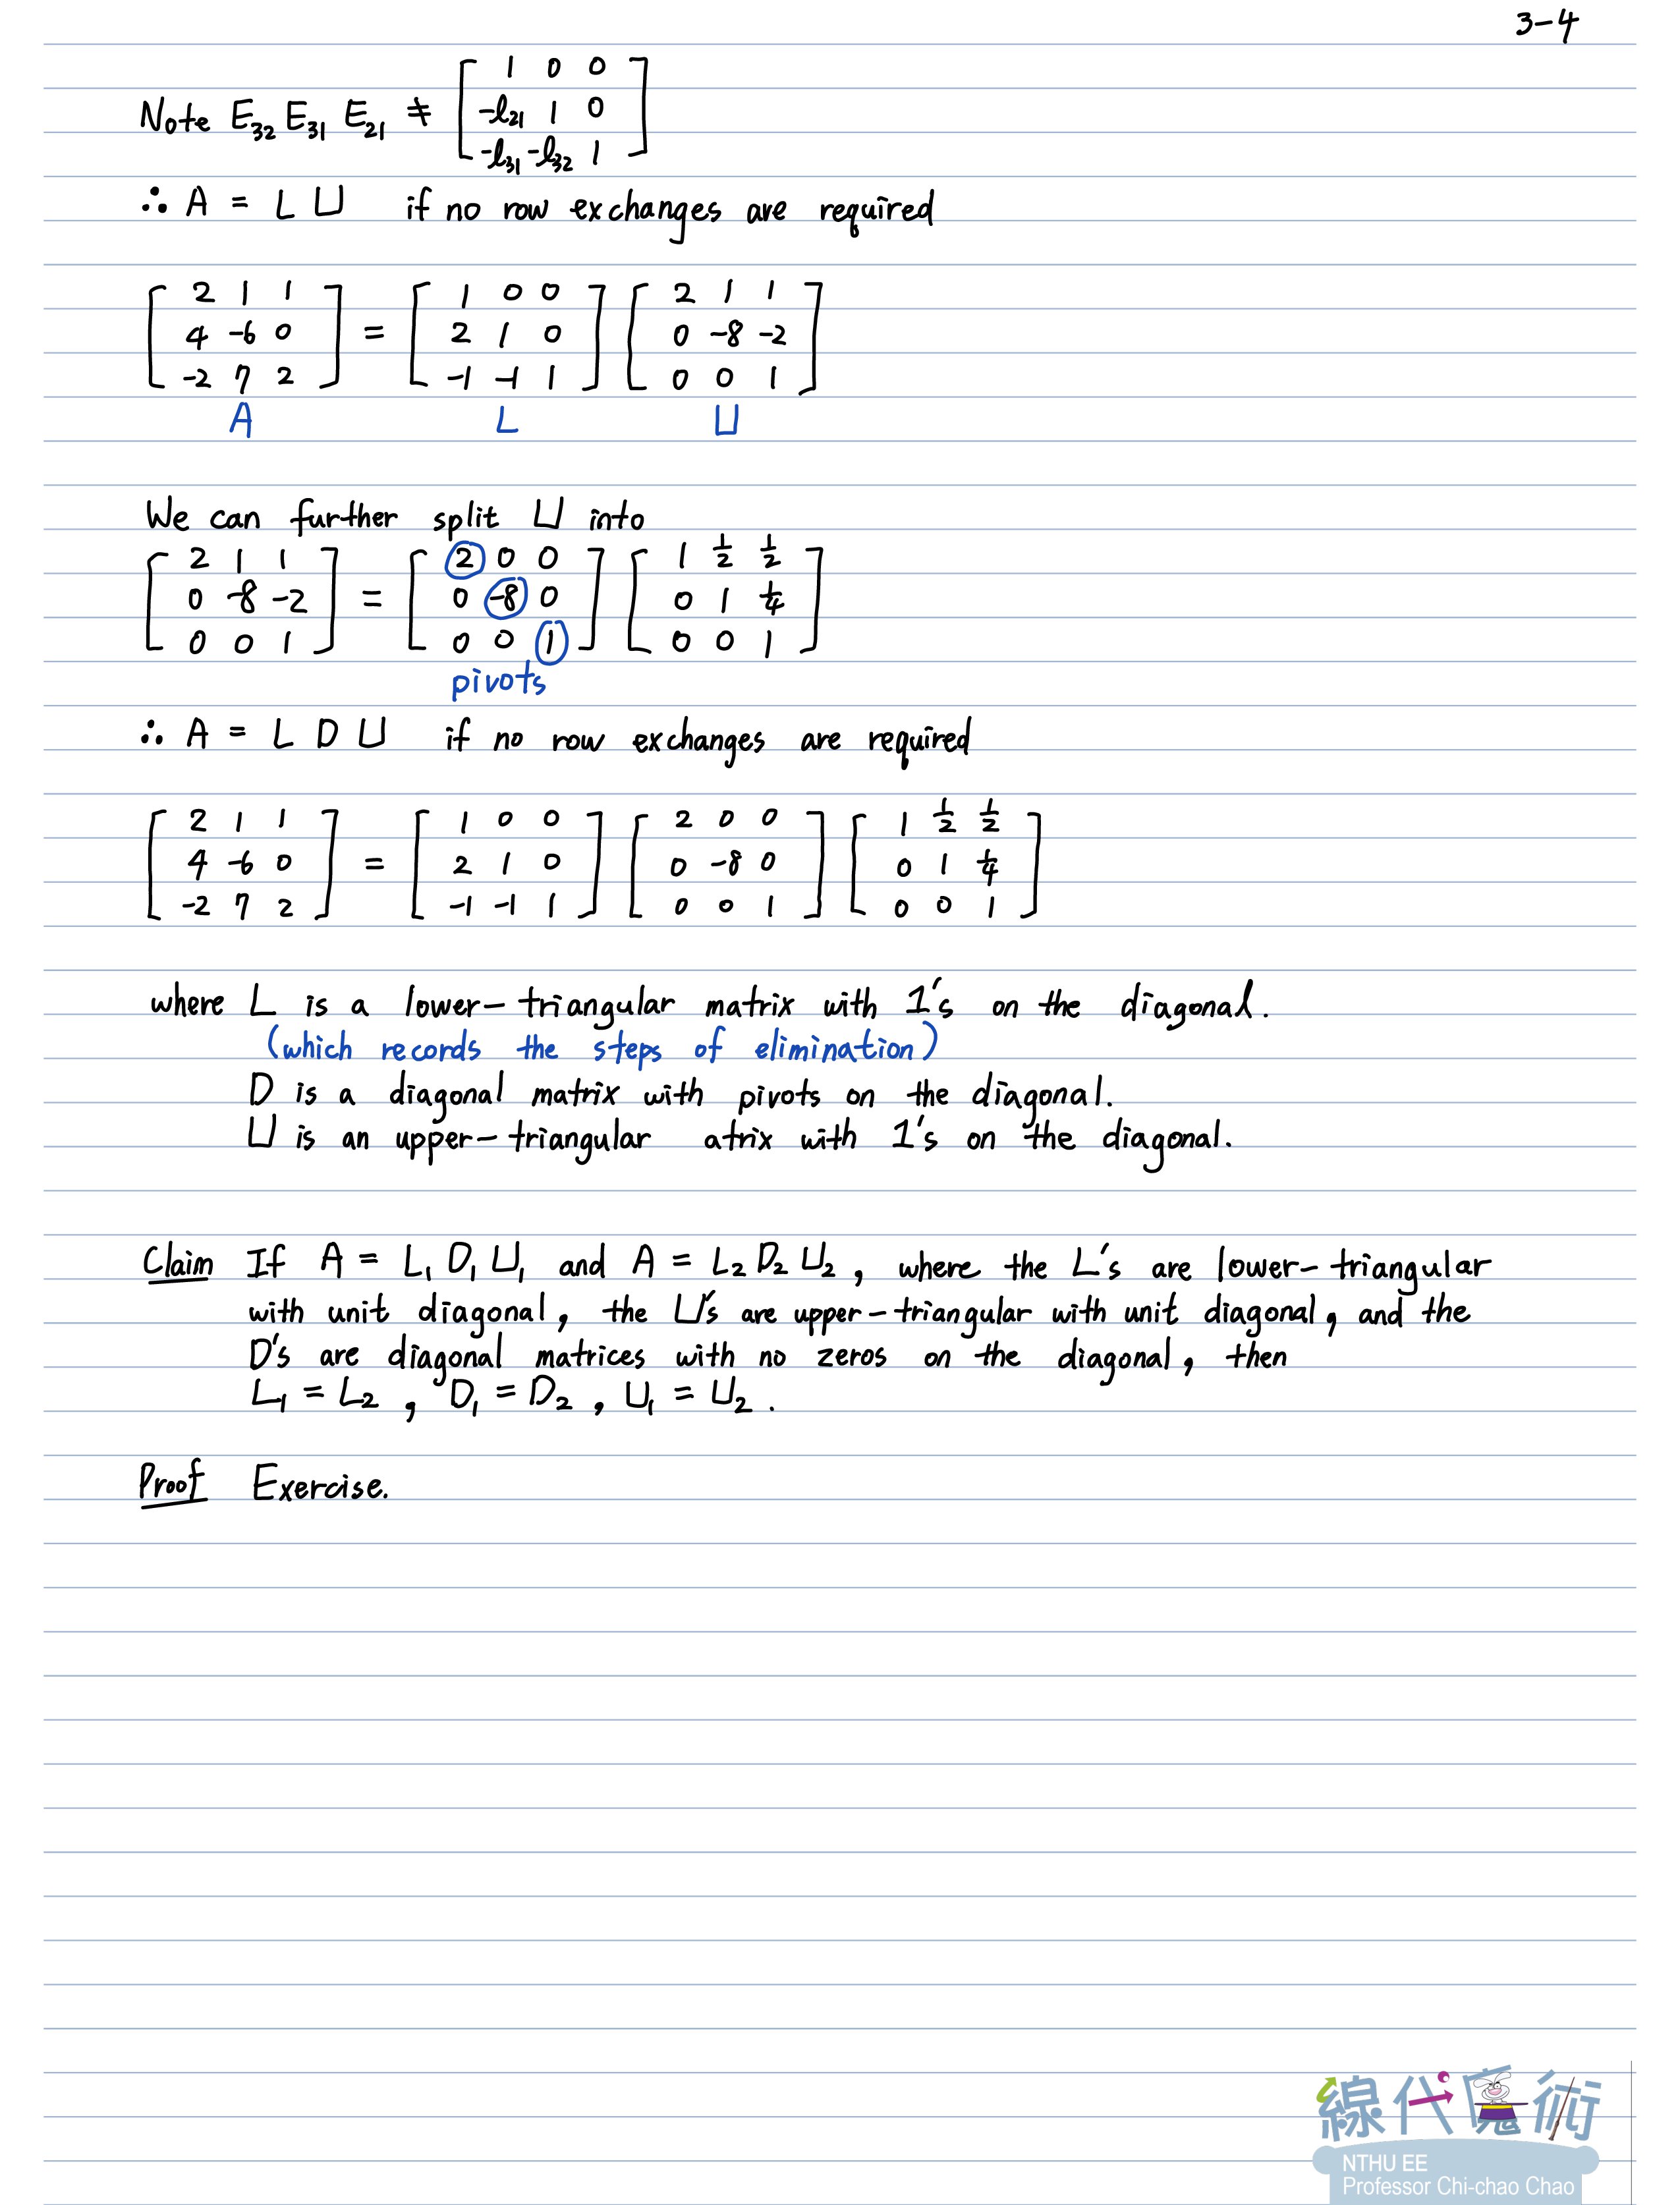 3-4
Note E₃₂ E₃₁ E₂₁ ≠ [ 1 0 0
-l₂₁ 1 0
-l₃₁ -l₃₂ 1 ]
∴ A = L U if no row exchanges are required
[ 2 1 1 ] = [ 1 0 0 ] [ 2 1 1 ]
[ 4 -6 0 ] [ 2 1 0 ] [ 0 -8 -2 ]
[ -2 7 2 ] [ -1 -1 1 ] [ 0 0 1 ]
A L U
We can further split U into
[ 2 1 1 ] = [ 2 0 0 ] [ 1 1/2 1/2 ]
[ 0 -8 -2 ] [ 0 -8 0 ] [ 0 1 1/4 ]
[ 0 0 1 ] [ 0 0 1 ] [ 0 0 1 ]
pivots
∴ A = L D U if no row exchanges are required
[ 2 1 1 ] = [ 1 0 0 ] [ 2 0 0 ] [ 1 1/2 1/2 ]
[ 4 -6 0 ] [ 2 1 0 ] [ 0 -8 0 ] [ 0 1 1/4 ]
[ -2 7 2 ] [ -1 -1 1 ] [ 0 0 1 ] [ 0 0 1 ]
where L is a lower-triangular matrix with 1's on the diagonal.
(which records the steps of elimination)
D is a diagonal matrix with pivots on the diagonal.
U is an upper-triangular atrix with 1's on the diagonal.
Claim If A = L₁ D₁ U₁ and A = L₂ D₂ U₂, where the L's are lower-triangular
with unit diagonal, the U's are upper-triangular with unit diagonal, and the
D's are diagonal matrices with no zeros on the diagonal, then
L₁ = L₂, D₁ = D₂, U₁ = U₂.
Proof Exercise.
線代魔術
NTHU EE
Professor Chi-chao Chao